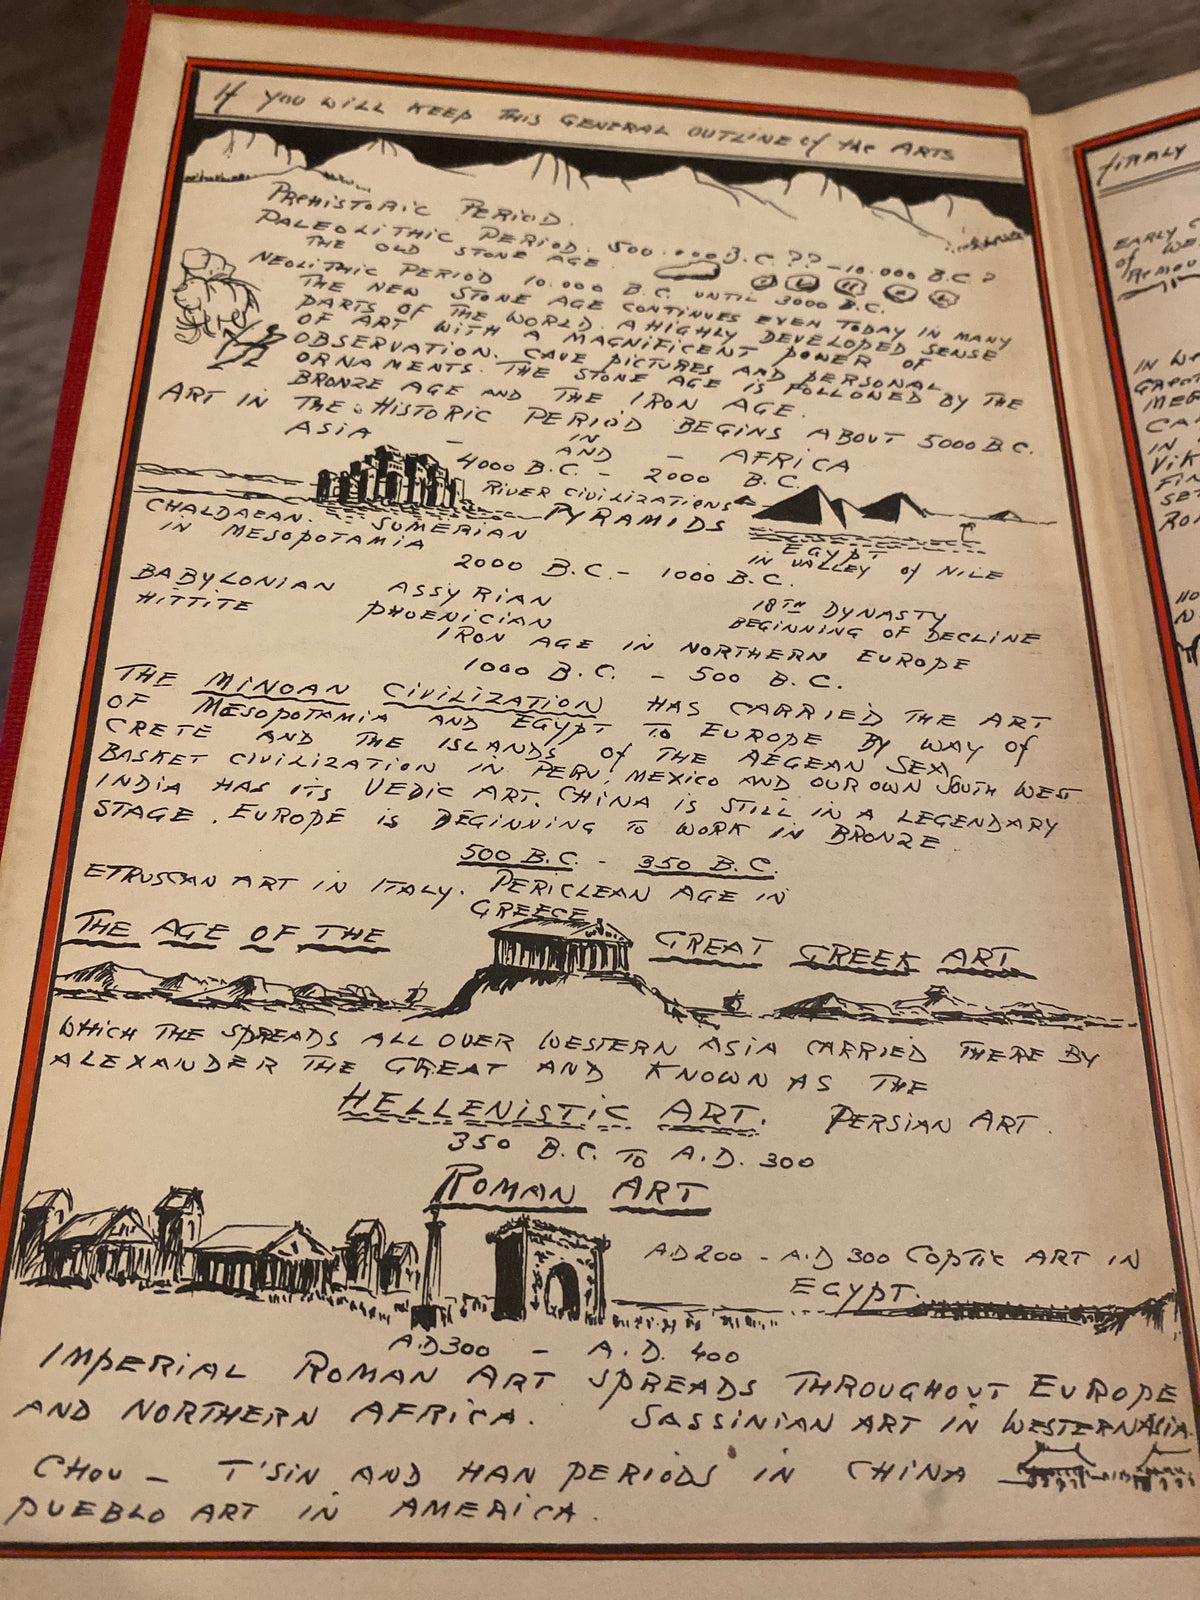 If YOU WILL KEEP THIS GENERAL OUTLINE of the ARTS
PREHISTORIC PERIOD.
PALEOLITHIC PERIOD. 500.000 B.C.?? - 10.000 B.C?
THE OLD STONE AGE.
NEOLITHIC PERIOD 10.000 B.C. UNTIL 3000 B.C.
THE NEW STONE AGE CONTINUES EVEN TODAY IN MANY
PARTS OF THE WORLD. A HIGHLY DEVELOPED SENSE
OF ART WITH A MAGNIFICENT POWER OF
OBSERVATION. CAVE PICTURES AND PERSONAL
ORNAMENTS. THE STONE AGE IS FOLLOWED BY THE
BRONZE AGE AND THE IRON AGE.
ART IN THE HISTORIC PERIOD BEGINS ABOUT 5000 B.C.
IN
ASIA - AND - AFRICA
4000 B.C. - 2000 B.C.
RIVER CIVILIZATIONS
PYRAMIDS
CHALDAEAN. SUMERIAN
IN MESOPOTAMIA
EGYPT
IN VALLEY of NILE
2000 B.C. - 1000 B.C.
BABYLONIAN ASSYRIAN 18TH DYNASTY
HITTITE PHOENICIAN BEGINNING OF DECLINE
IRON AGE IN NORTHERN EUROPE
1000 B.C. - 500 B.C.
THE MINOAN CIVILIZATION HAS CARRIED THE ART
OF MESOPOTAMIA AND EGYPT TO EUROPE BY WAY of
CRETE AND THE ISLANDS of THE AEGEAN SEA
BASKET CIVILIZATION IN PERU, MEXICO AND OUR OWN SOUTH WEST
INDIA HAS ITS VEDIC ART. CHINA IS STILL IN A LEGENDARY
STAGE. EUROPE IS BEGINNING TO WORK IN BRONZE
500 B.C. - 350 B.C.
ETRUSCAN ART IN ITALY. PERICLEAN AGE IN
GREECE
THE AGE OF THE GREAT GREEK ART
WHICH THE SPREADS ALL OVER WESTERN ASIA CARRIED THERE BY
ALEXANDER THE GREAT AND KNOWN AS THE
HELLENISTIC ART. PERSIAN ART.
350 B.C. TO A.D. 300
ROMAN ART
A.D 200 - A.D 300 COPTIC ART IN
EGYPT.
A.D 300 - A.D. 400
IMPERIAL ROMAN ART SPREADS THROUGHOUT EUROPE
AND NORTHERN AFRICA. SASSINIAN ART IN WESTERN ASIA.
CHOU - T'SIN AND HAN PERIODS IN CHINA
PUEBLO ART IN AMERICA.
fiRMLY
EARLY C
of WE
IN
IN